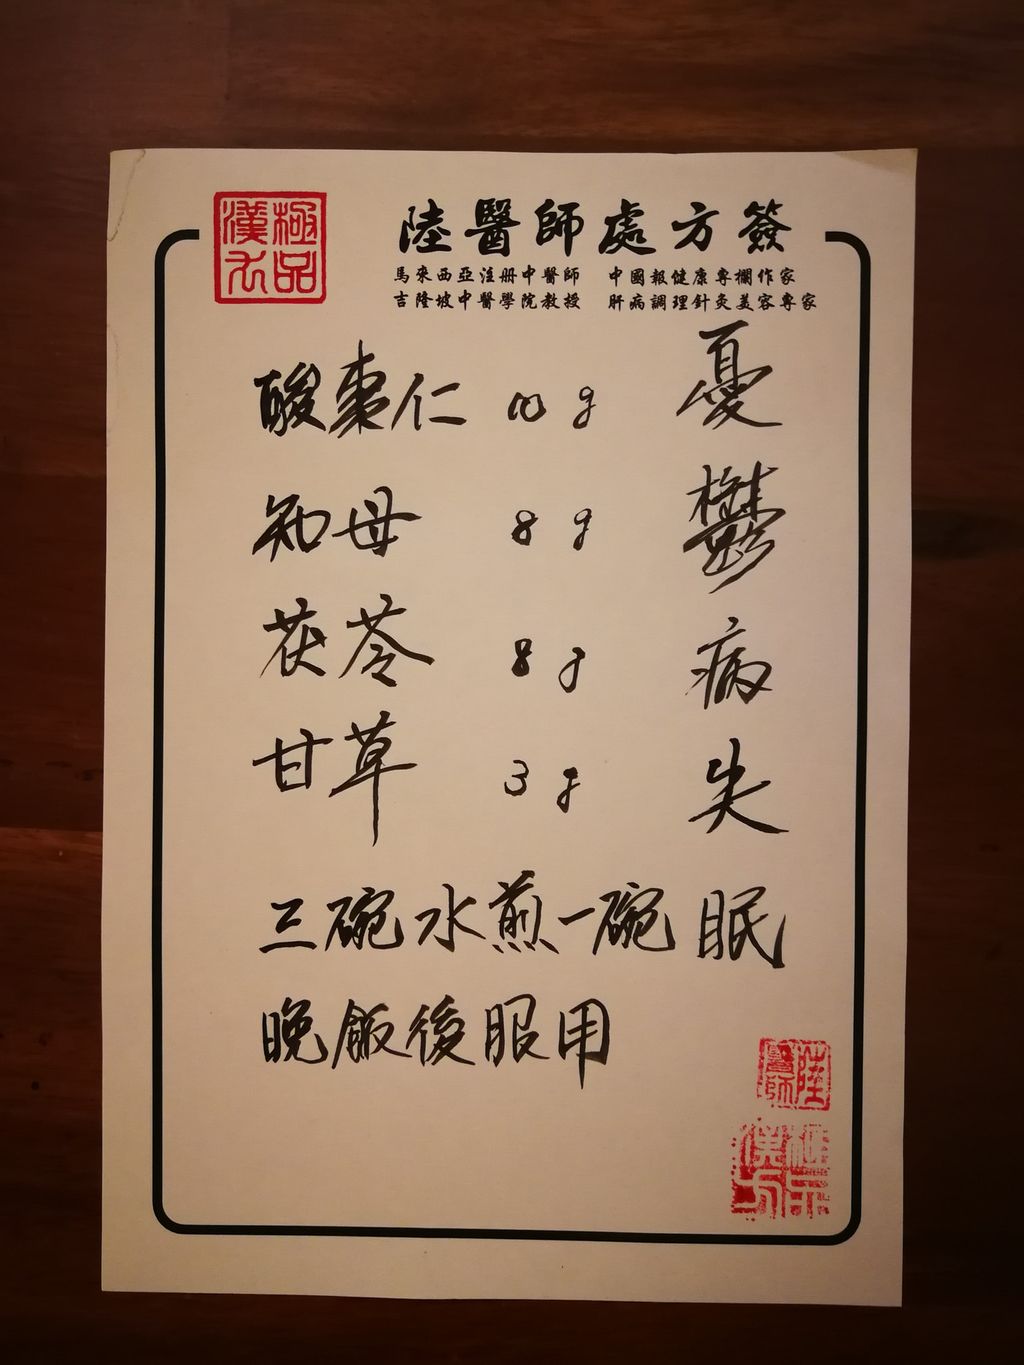 極品
漢方
陸醫師處方簽
馬來西亞注册中醫師 中國報健康專欄作家
吉隆坡中醫學院教授 肝病調理針灸美容專家
酸棗仁 10 g
知母 8 g
茯苓 8 g
甘草 3 g
三碗水煎一碗
晚飯後服用
憂鬱病失眠
陸醫師
極品漢方